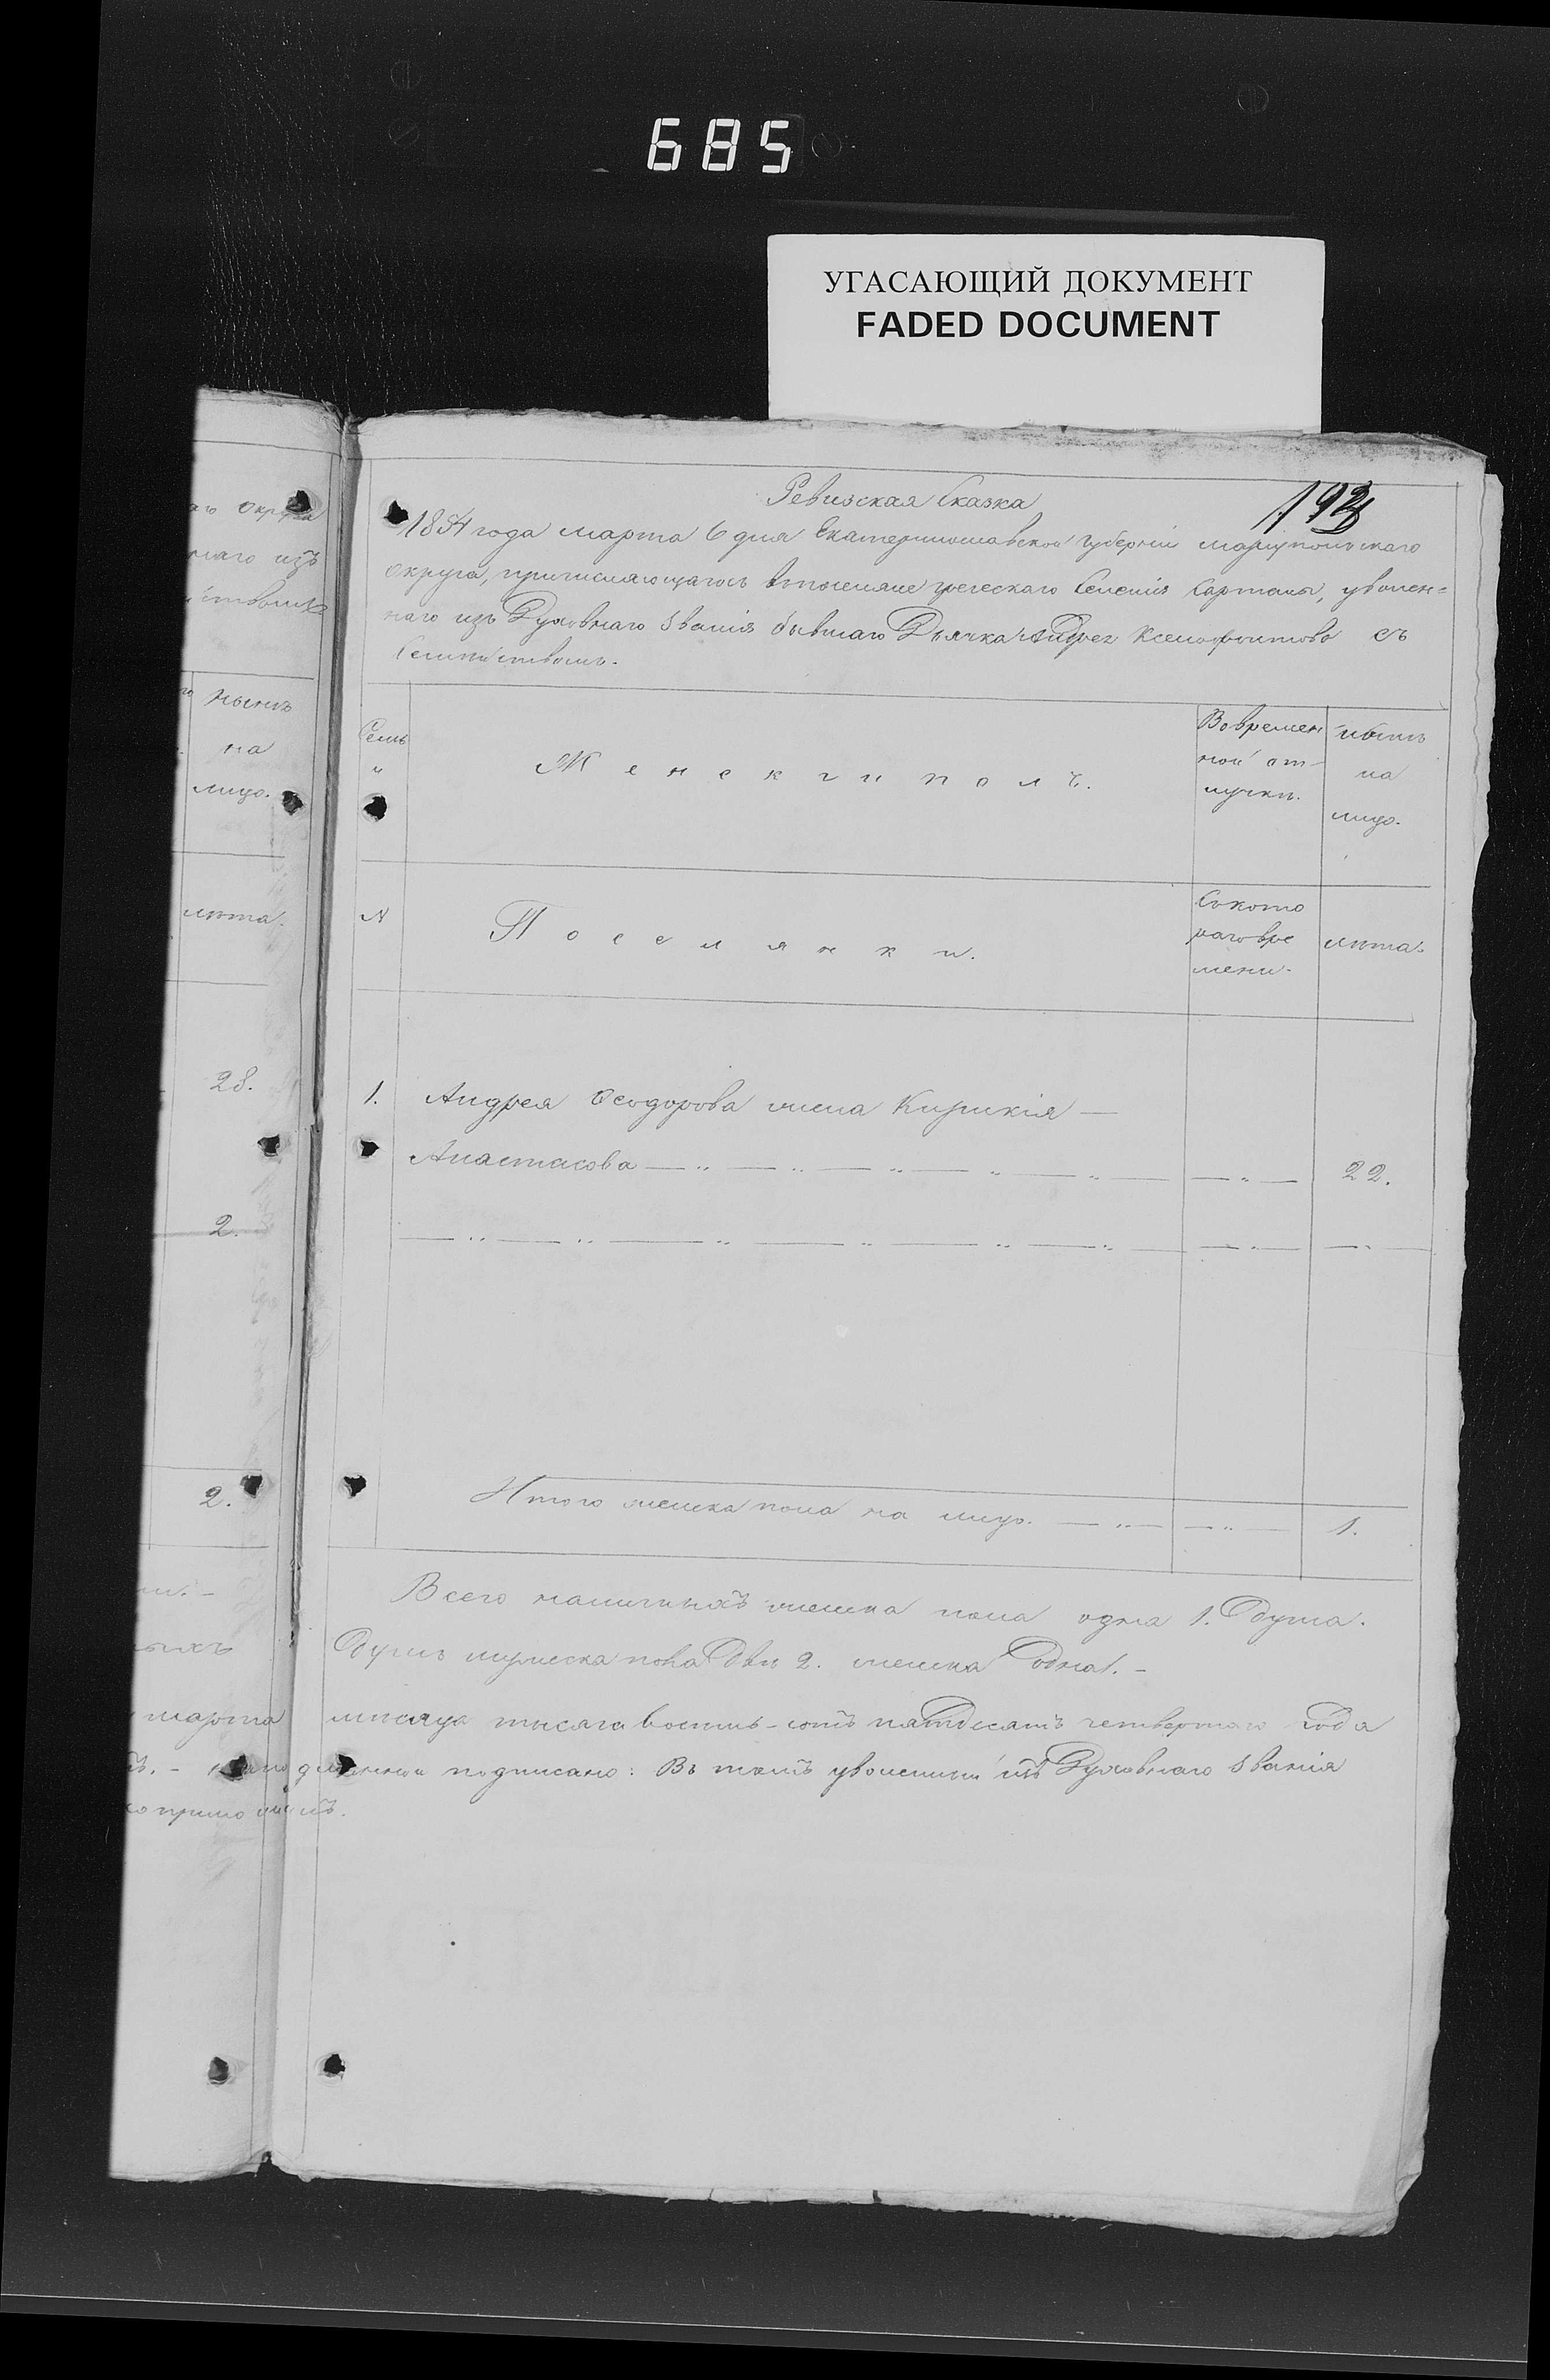 685
УГАСАЮЩИЙ ДОКУМЕНТ
FADED DOCUMENT
Ревизская Сказка
1854 года марта 6 дня Екатеринославской Губерніи Маріупольскаго
Округа, причисляющагося въ поселяне греческаго Селенія Сартаны, уволен=
наго изъ Духовнаго Званія бывшаго Дьячка Андрея Ксенофонтова съ
Семействомъ.
нынѣ
на
лицо.
Семьи
Женскій полъ.
Во времен
ной от-
лучки.
ныть
на
лицо.
лѣта.
N
Поселянки.
Съ кото
раго вре
мени.
лѣта.
28.
1. Андрея Ѳеодорова жена Кирикія —
Анастасова — 22.
2.
2.
Итого женска пола на лицо. — 1.
Всего наличныхъ женска пола одна 1. Душа.
Душъ мужеска пола Двѣ 2. женска Одна 1. -
марта мѣсяца тысяча восемь-сотъ пятдесятъ четвертаго Года
подписано: Въ томъ уволенный изъ Духовнаго Званія